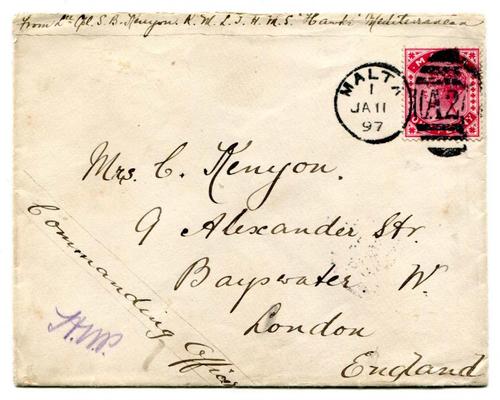 From L. Cpl. S. B. Kenyon. R. M. L. I. H. M. S. "Hawke" Mediterranean
MALTA
1
JA 11
97
A25
Mrs. C. Kenyon.
9 Alexander Str.
Bayswater W.
London
England
Commanding Officer